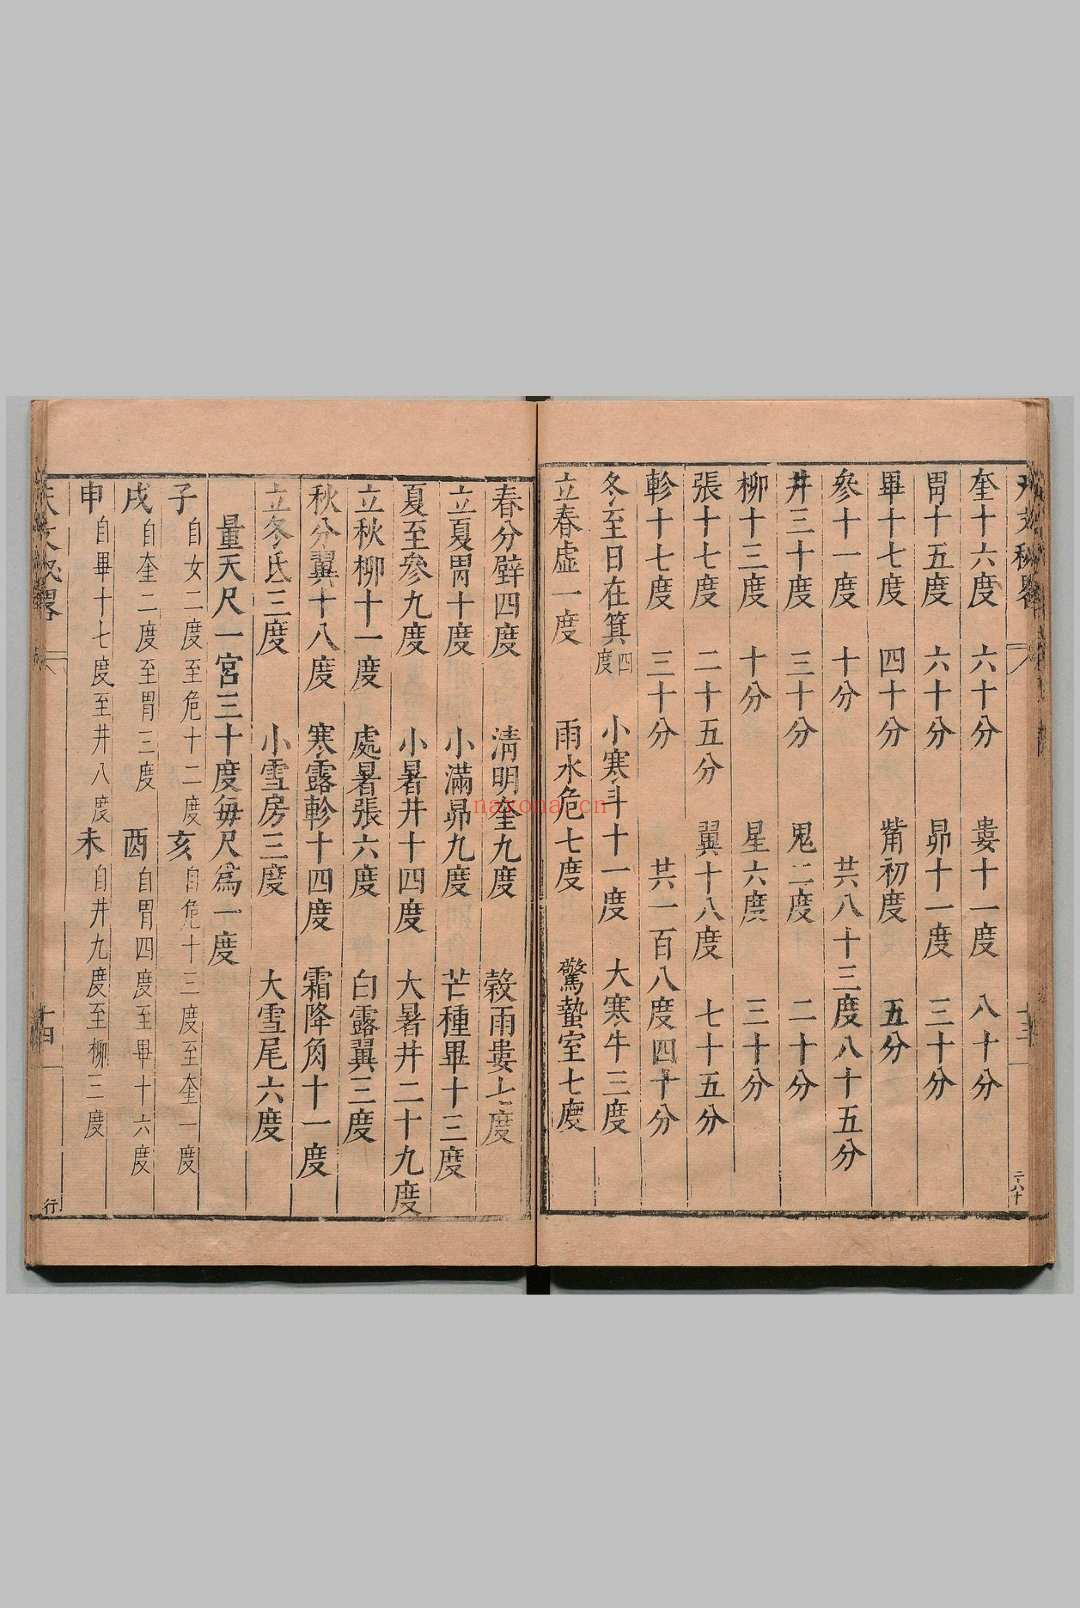 天文秘畧
奎十六度 六十分 婁十一度 八十分
胃十五度 六十分 昴十一度 三十分
畢十七度 四十分 觜初度 五分
參十一度 十分 共八十三度八十五分
井三十度 三十分 鬼二度 二十分
柳十三度 十分 星六度 三十分
張十七度 二十五分 翼十八度 七十五分
軫十七度 三十分 共一百八度四十分
冬至日在箕四度 小寒斗十一度 大寒牛三度
立春虛一度 雨水危七度 驚蟄室七度
春分壁四度 清明奎九度 穀雨婁七度
立夏胃十度 小滿昴九度 芒種畢十三度
夏至參九度 小暑井十四度 大暑井二十九度
立秋柳十一度 處暑張六度 白露翼三度
秋分翼十八度 寒露軫十四度 霜降角十一度
立冬氐三度 小雪房三度 大雪尾六度
量天尺一宮三十度每尺爲一度
子自女二度至危十二度 亥自危十三度至奎一度
戌自奎二度至胃三度 酉自胃四度至畢十六度
申自畢十七度至井八度 未自井九度至柳二度
天文秘畧
十四
行